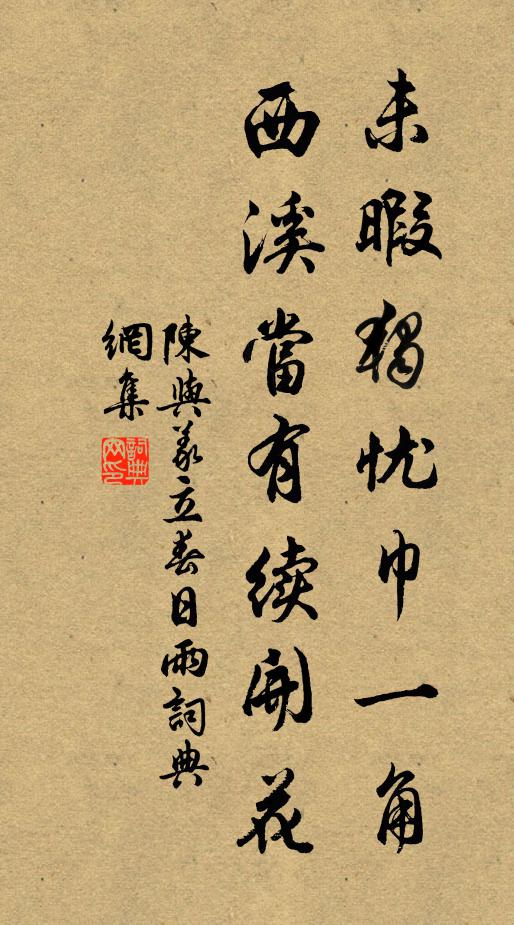 未暇独忧巾一角
西溪當有续開花
陳與義立春日雨詞典
網集
詞典
网印